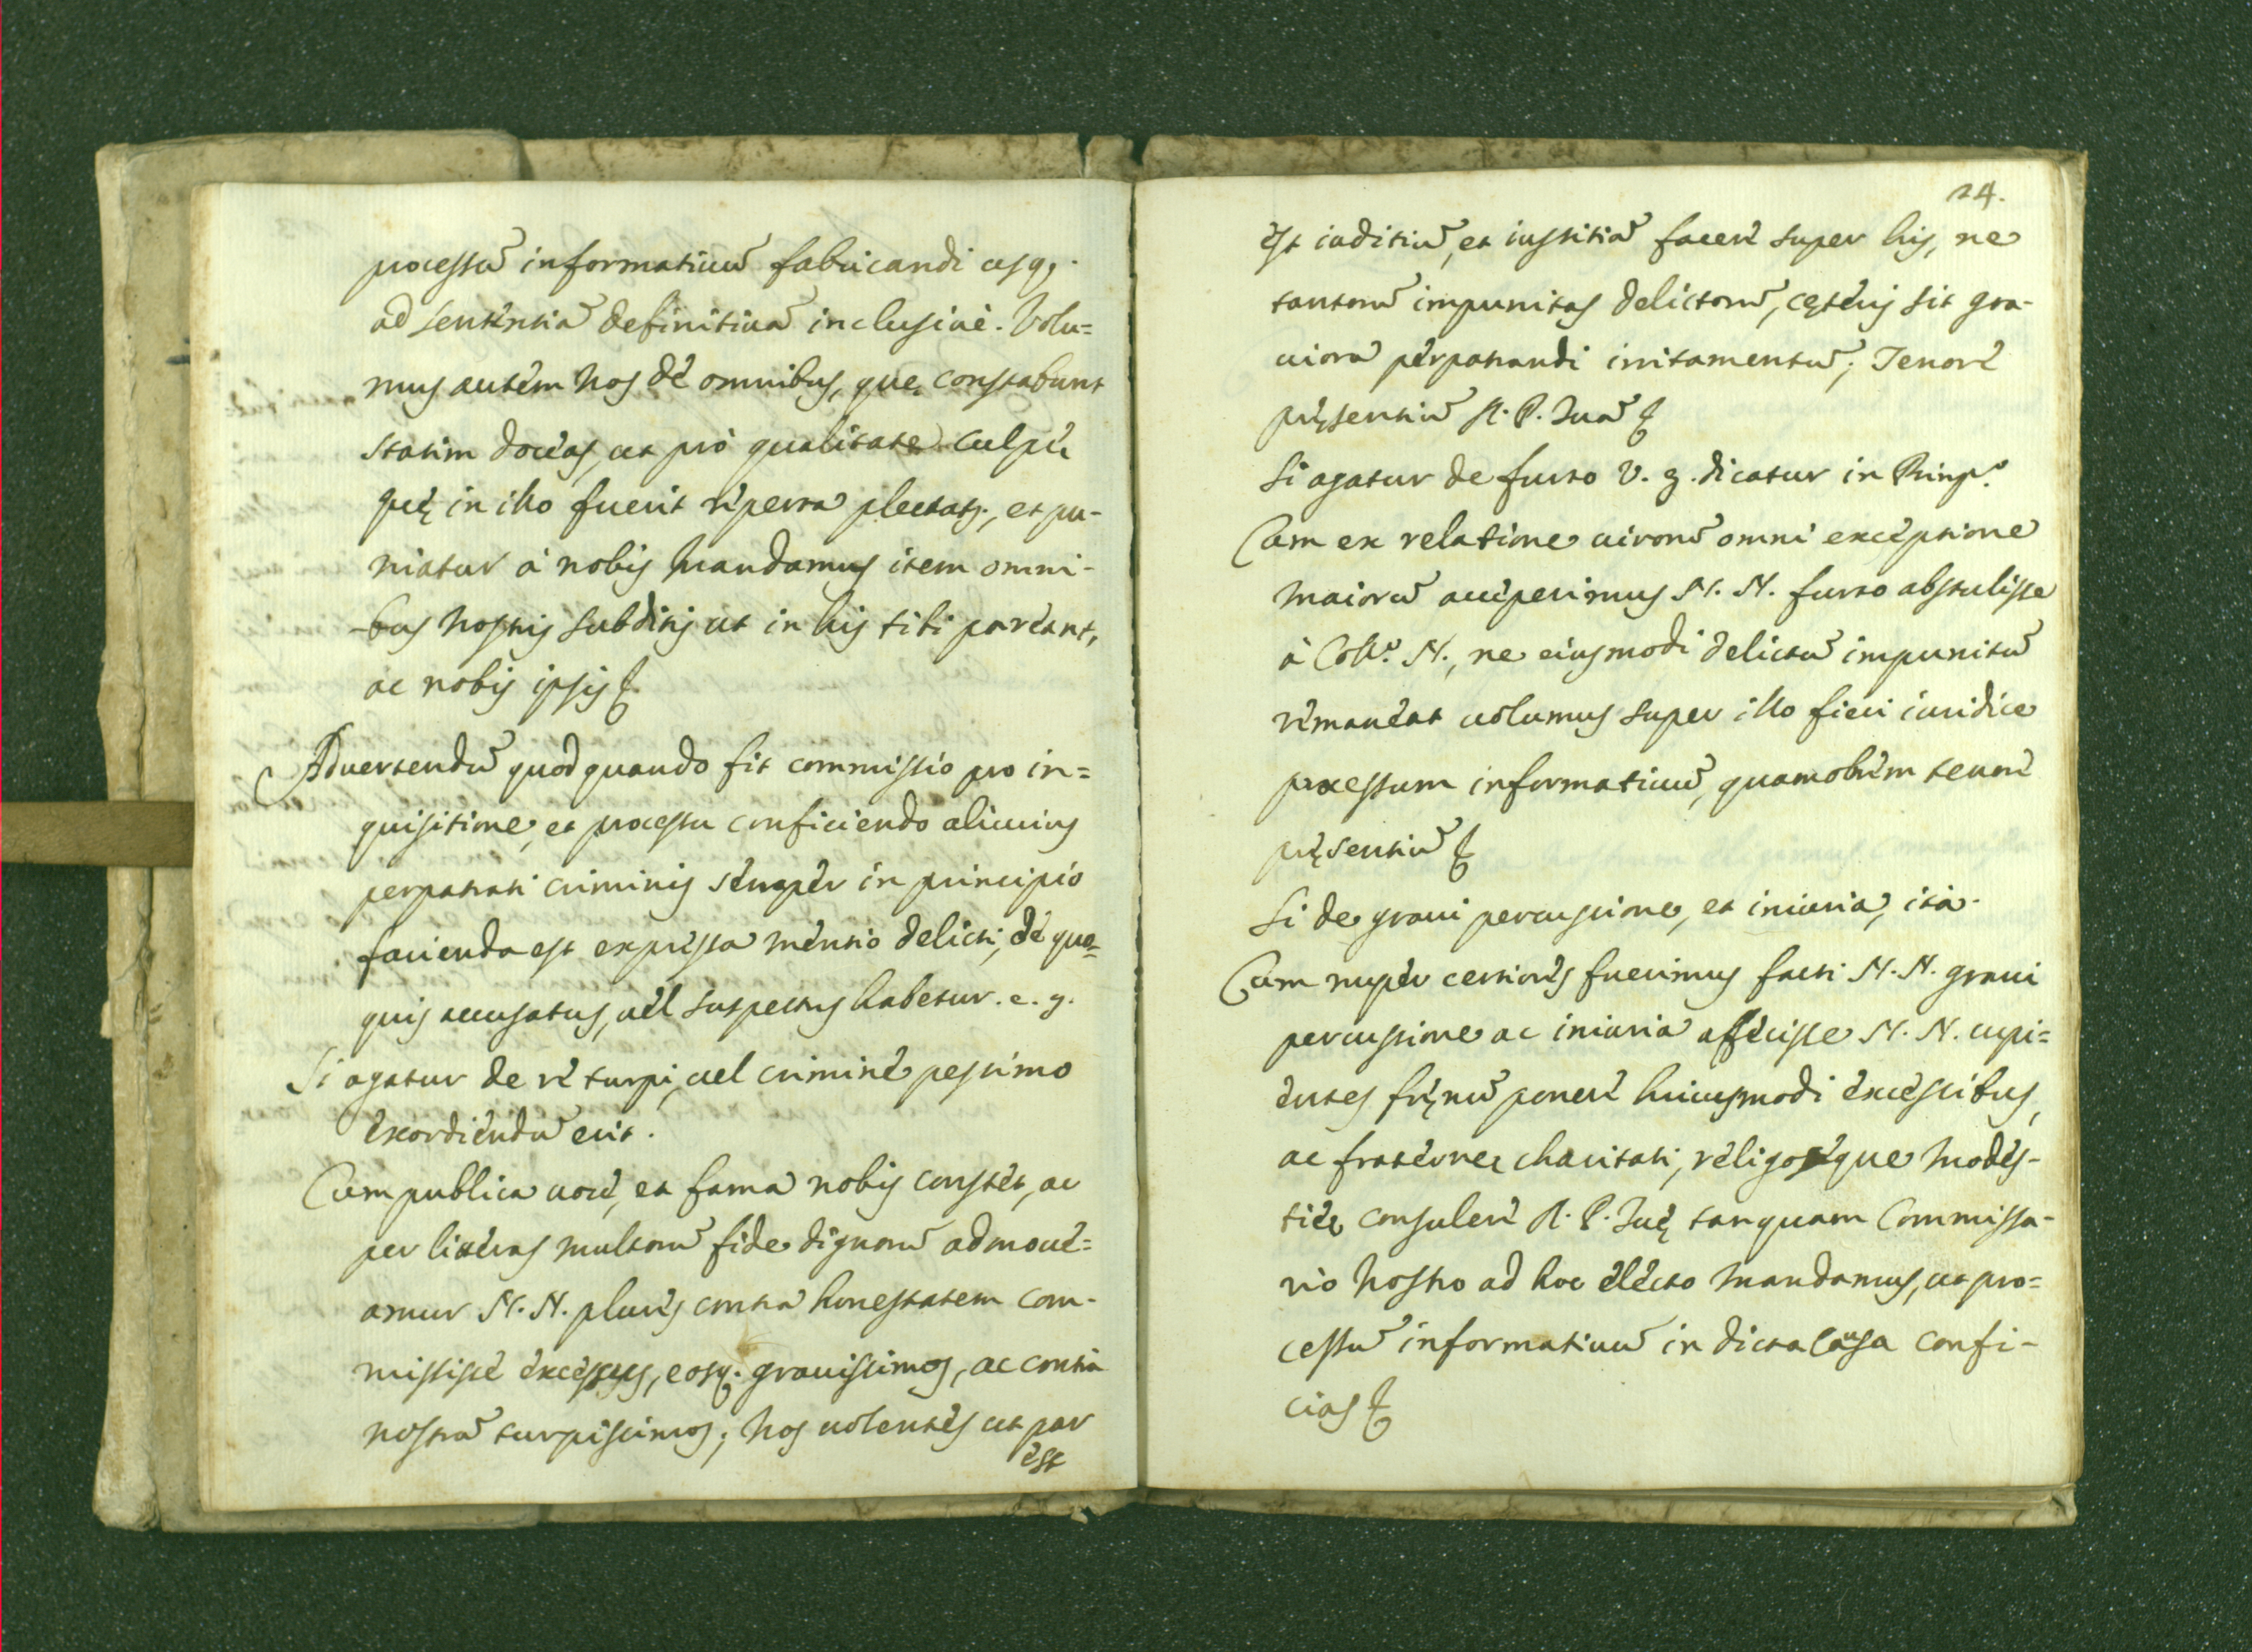 processū informatiuū fabricandi usq₃.
ad sententiā definitiuā inclusiuè. Volu=
mus autem nos de omnibus, quę constabunt
statim doceas, ut pro qualitate culpę
quę in illo fuerit reperta plectat.̃, et pu-
niatur à nobis Mandamus item omni-
bus nostris subditis ut in his tibi pareant,
ac nobis ipsis &.
Aduertendū quod quando fit commissio pro in=
quisitione, et processu conficiendo alicuius
perpatrati criminis semper in principio
facienda est expressa mentio delicti, de quo=
quis accusatus, uel suspectus habetur. e. g.
Si agatur de re turpi, uel crimine pessimo
exordiendū erit.
Cum publica uoce, et fama nobis constet, ac
per litteras multorū fide dignorū admoue=
amur N. N. plures contra honestatem com-
missise excessus, eosq. grauissimos, ac contra
nostrā turpissimos; nos uolentes ut par
est
24.
est iuditiū, et iustitiā facere super his, ne
tantorū impunitas delictorū, cęteris sit gra-
uiora perpatrandi irritamentū; Tenore
pręsentiū R. P. Tuā &
Si agatur de furto V. g. dicatur in Prinp.º
Cum ex relatione uirorū omni exceptione
maiorū acceperimus N. N. furto abstulisse
à Coll.º N., ne eiusmodi delictū impunitū
remaneat uolumus super illo fieri iuridice
processum informatiuū, quamobrem tenore
pręsentiū &
Si de graui percussione, et iniuria, ita.
Cum nuper certiores fuerimus facti N. N. graui
percussione ac iniuria affecisse N. N. cupi=
entes fręnū ponere huiusmodi excessibus,
ac fraternę charitati, religosęque modes-
tię consulere R. P. Tuę tanquam Commissa-
rio nostro ad hoc electo mandamus, ut pro=
cessū informatiuū in dicta causa confi-
cias &